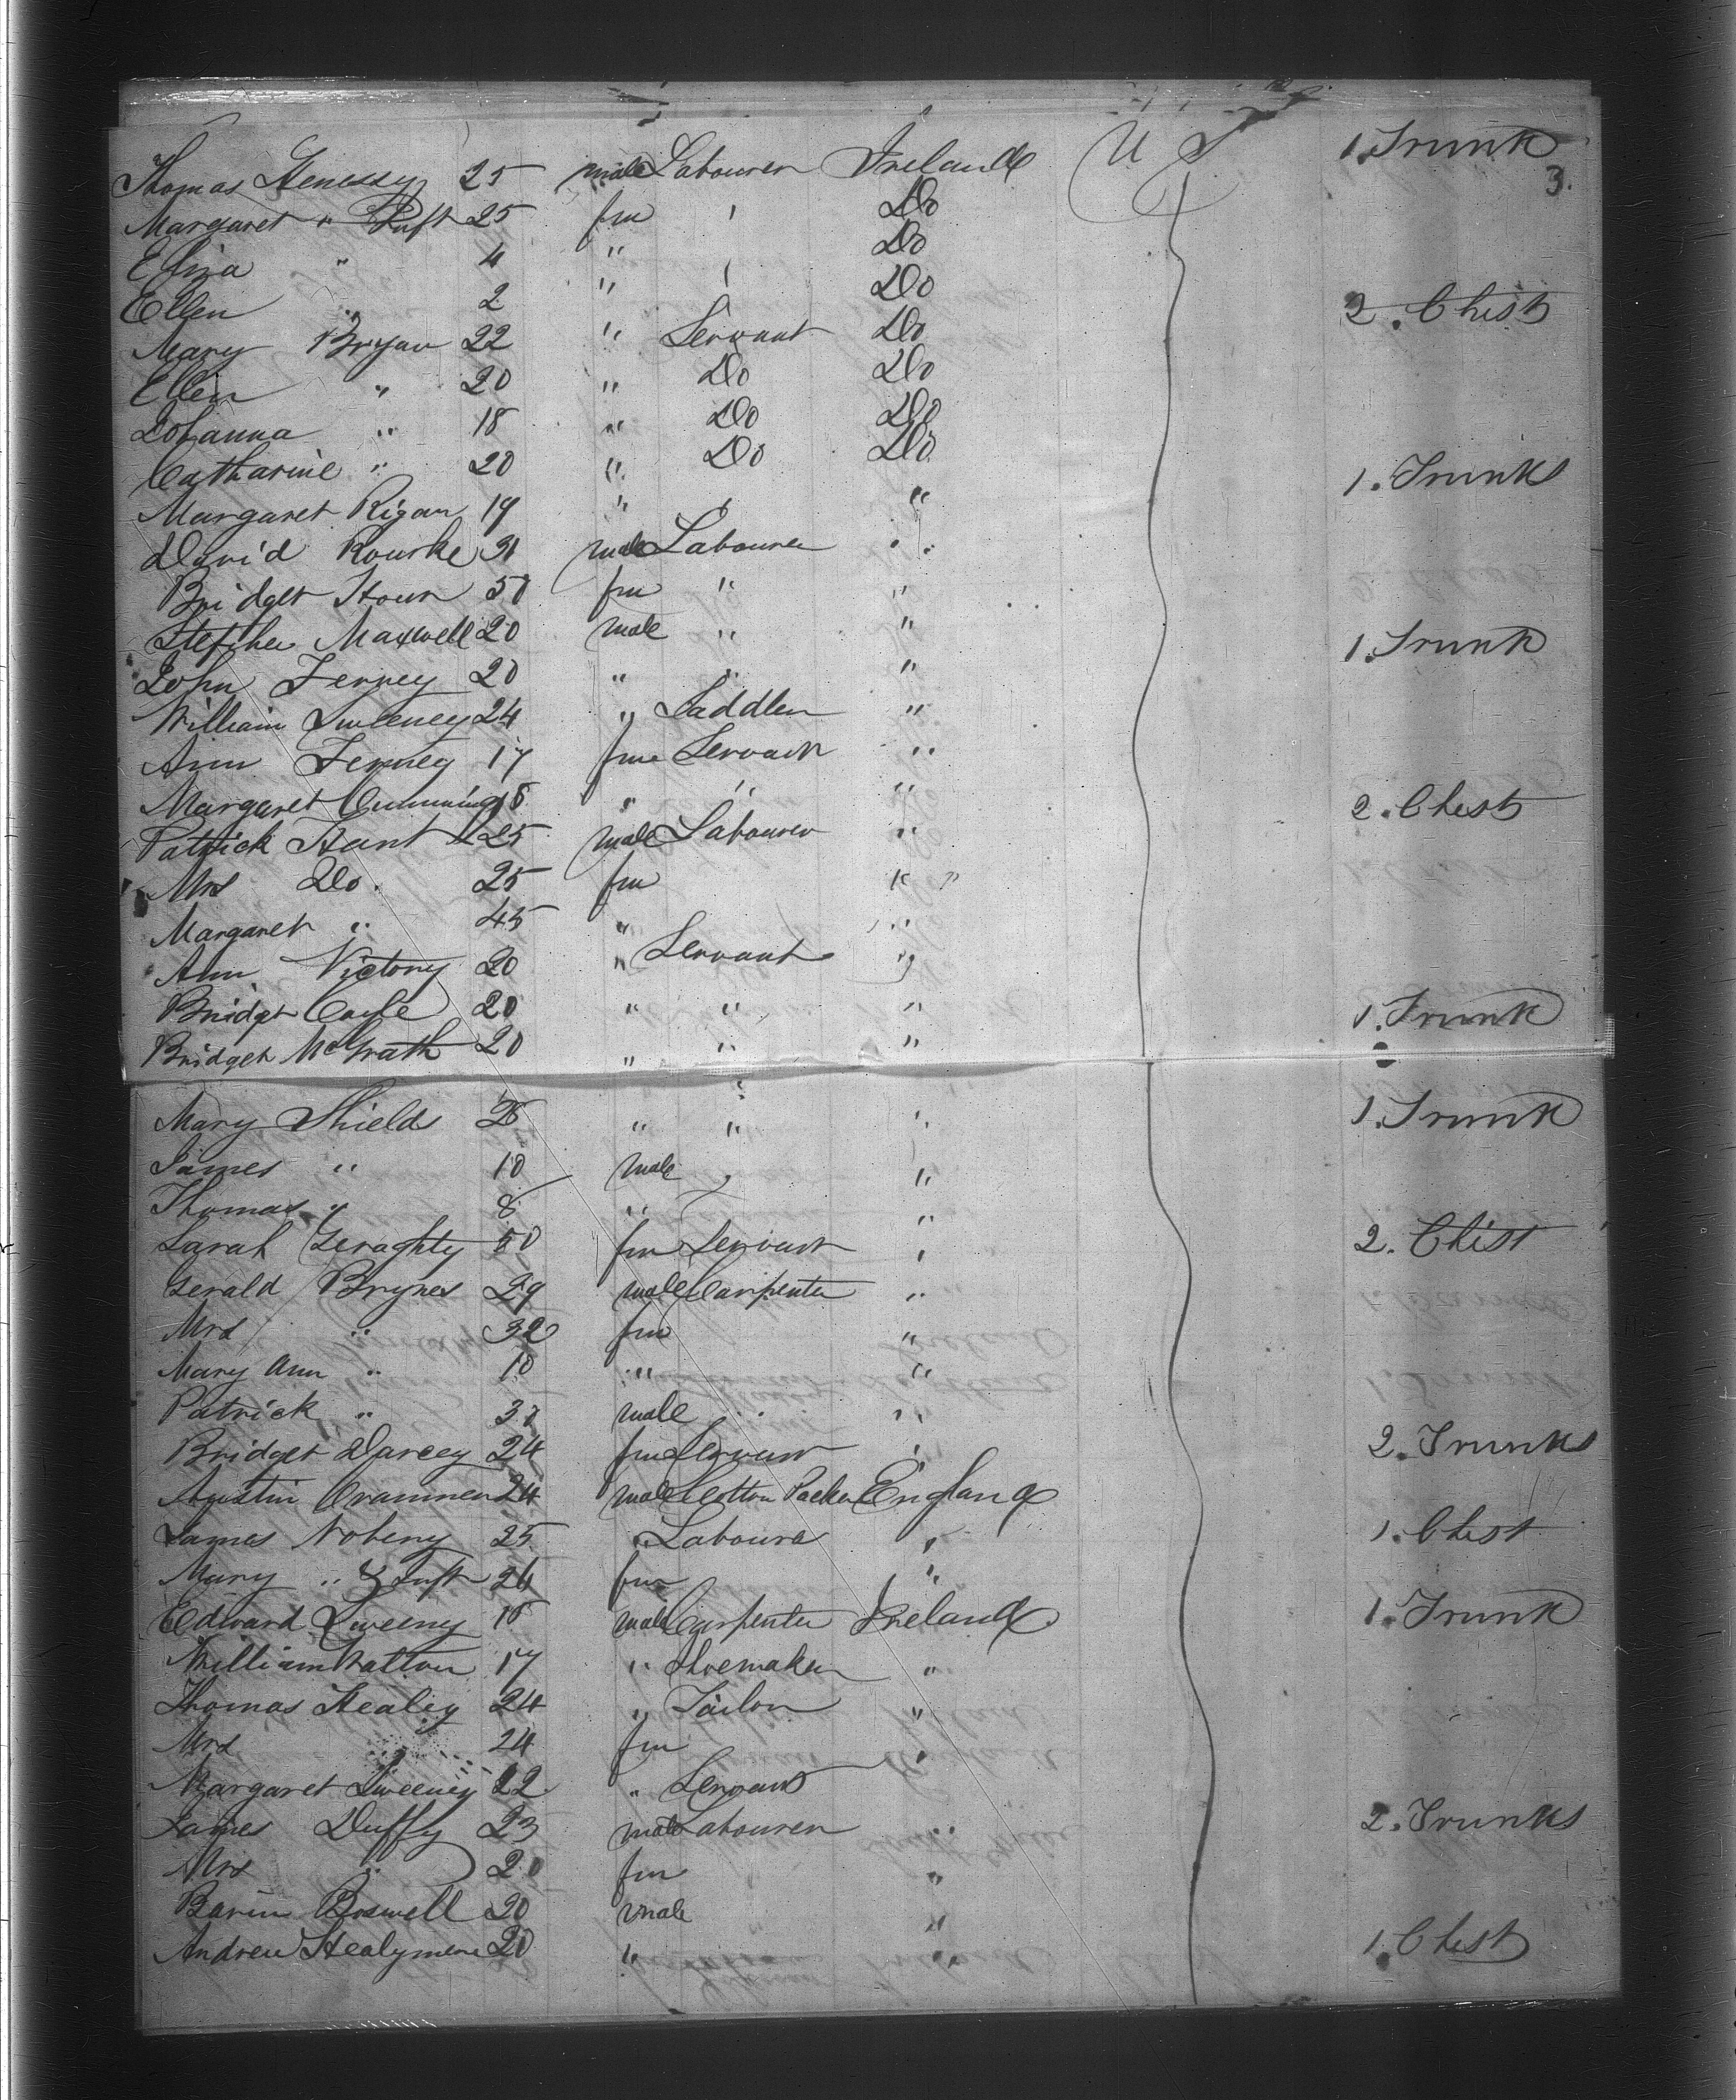 Thomas Henessy 25 male Labourer Ireland U S 1. Trunk
3.
Margaret " Inft 25 fm ' Do
Eliza " 4 " Do
Ellen " 2 " ' Do 2. Chest
Mary Bryan 22 " Servant Do
Ellen " 20 " Do Do
Johanna " 18 " Do Do
Catharine " 20 " Do Do 1. Trunks
Margaret Rigan 19 " ' "
David Rourke 31 male Labourer "
Bridget 50 fm " "
Stephen Maxwell 20 male " " 1. Trunk
John Ferney 20 " " "
William Sweeney 24 " Saddler "
Ann Ferney 17 fm Servant "
Margaret Cummings 18 " " " 2. Chest
Patrick Hant 25 male Labourer "
Mrs Do. 25 fm "
Margaret " 45 " "
Ann Victory 20 " Servant "
Bridget Coyle 20 " " " 1. Trunk
Bridget McGrath 20 " " "
Mary Shields 28 " " " 1. Trunk
James " 10 male ' "
Thomas " 8 " "
Sarah Geraghty 50 fm Servant ' 2. Chist
Gerald Brynes 29 male Carpenter "
Mrs " 32 fm "
Mary Ann " 10 " "
Patrick " 31 male "
Bridget Darcey 24 fm Servant ' 2. Trunks
Austin 24 male Cotton Packer England
James Noheny 25 " Laboura " 1. Chest
Mary " & Inft 24 fm "
Edward Sweeny 18 male Carpenter Ireland 1. Trunk
William Hatton 17 " Shoemaker "
Thomas Healey 24 " Tailor "
Mrs " 24 fm '
Margaret Sweeney 22 " Servant
James Duffy 23 male Labourer " 2. Trunks
Mrs " 20 fm "
Boswell 20 male "
Andrew 20 " " 1. Chest